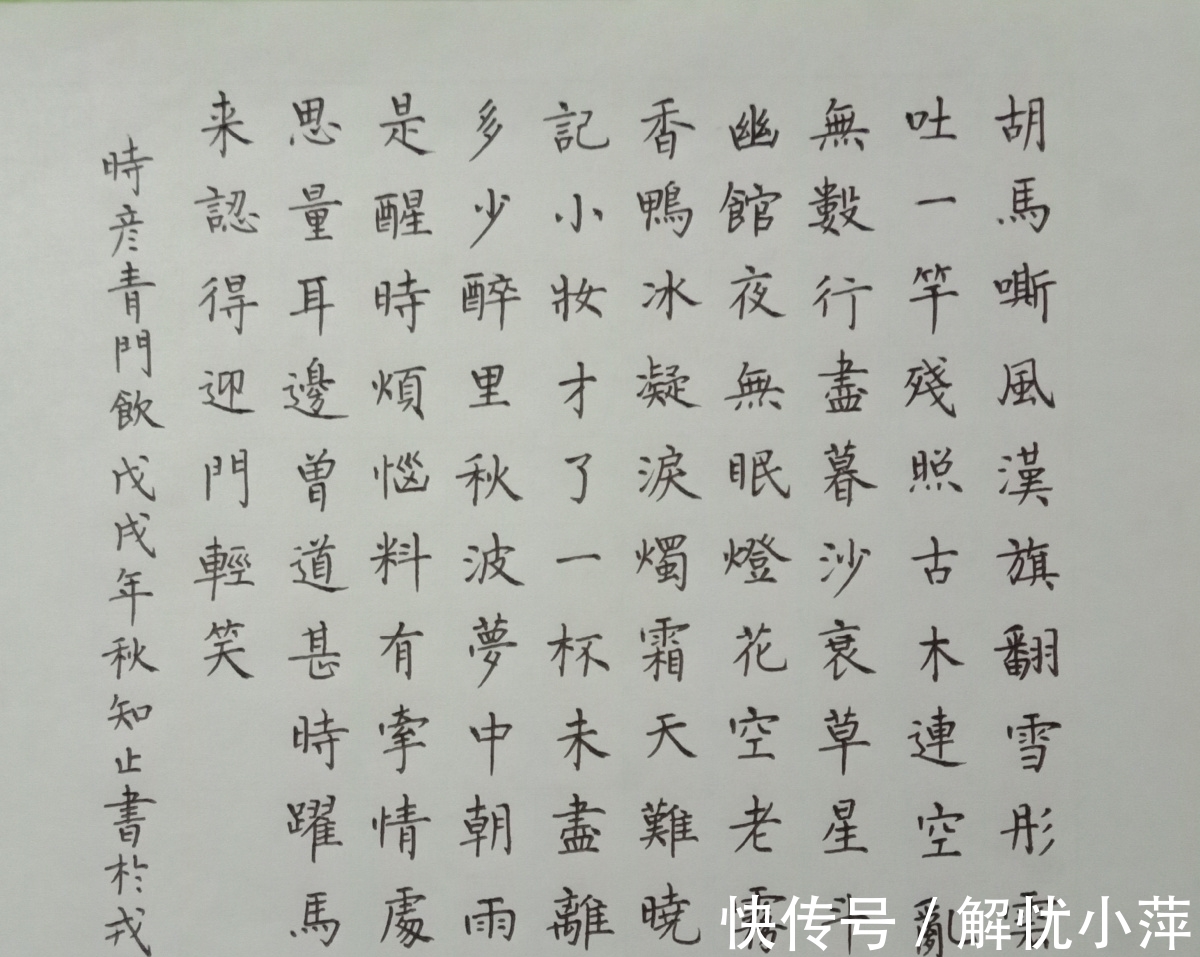 胡馬嘶風漢旗翻雪彤雲
吐一竿殘照古木連空亂
無數行盡暮沙衰草星斗
幽館夜無眠燈花空老霧
香鴨冰凝淚燭霜天難曉
記小妝才了一杯未盡離
多少醉里秋波夢中朝雨
是醒時煩惱料有牽情處
思量耳邊曾道甚時躍馬
来認得迎門輕笑
時彦青門飲戊戌年秋知止書於戎
快传号/解忧小萍